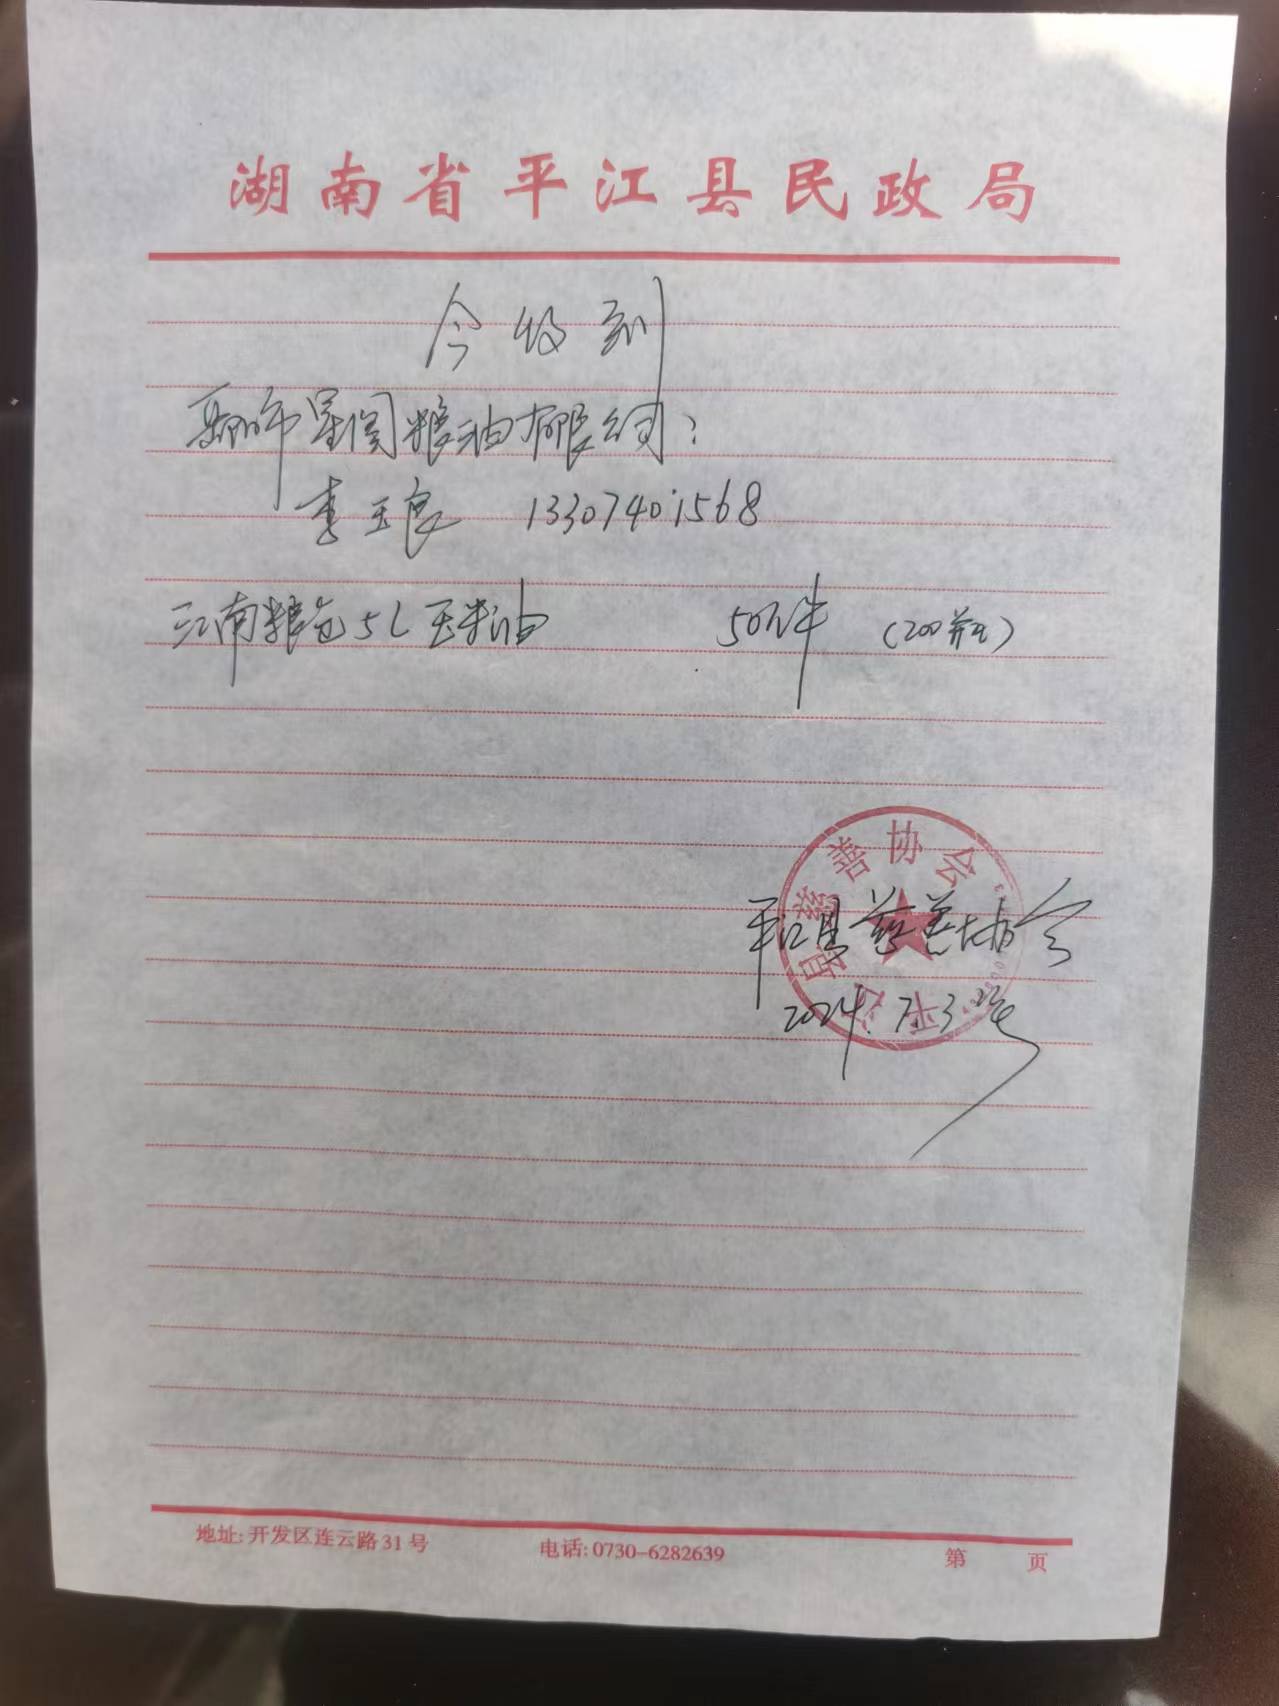 湖南省平江县民政局
今收到
市星阁粮油有限公司:
李玉良 13307401568
江南粮仓5L玉米油 50件 (200瓶)
平江县慈善协会
平江县慈善协会
2024.7.3号
地址:开发区连云路31号 电话:0730-6282639 第 页